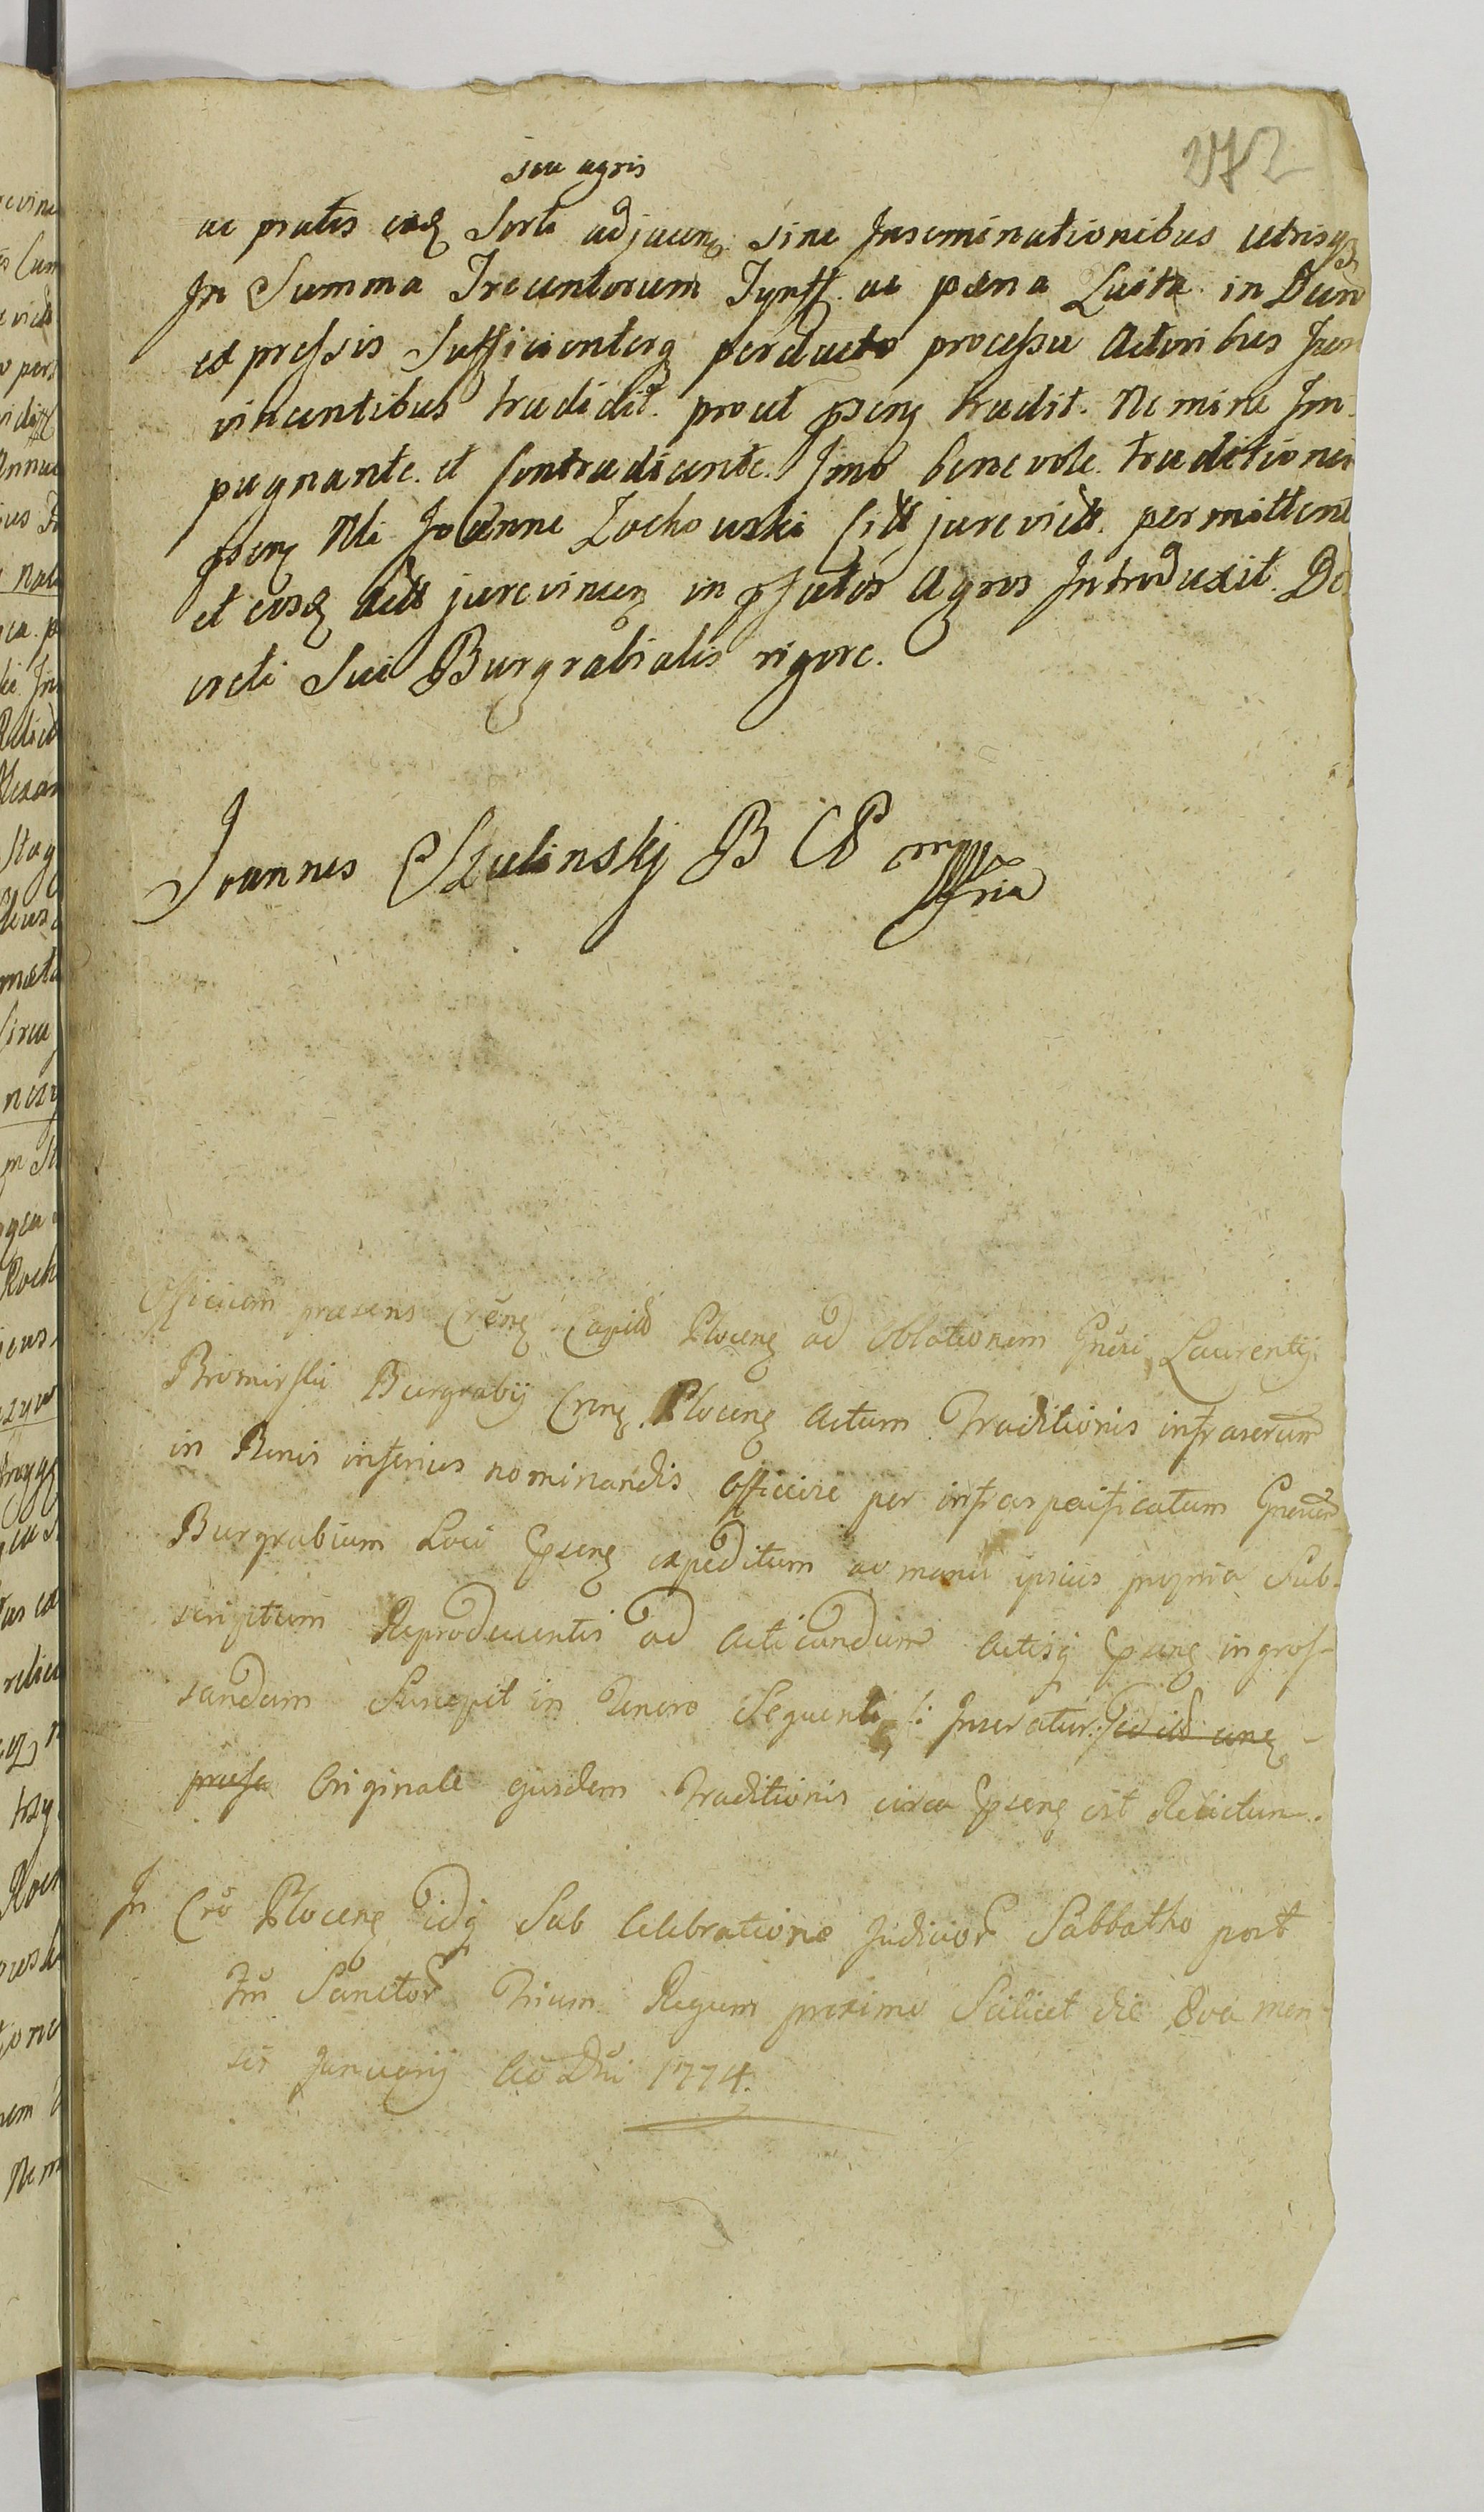 272
seu agris
ac pratis eidẽ Sorti adjacenẽ sine Inseminationibus utrisqȝ
In Summa Trecentorum Tynff. ac pæna Luita in Dun
expressis Sufficienterq perducto processu Actoribus Jure
vincentibus tradidit. prout pseñ tradit. Nemine Im-
pugnante. et Contradicente. Imo benevole. traditionem
pseñ Nli Joanne Zochowski Citt jurevict. permittent
et eosd Actt jurevinceñ in pfatos Agros Introduxit. De
creti Sui Burgrabialis rigore.
Joannes Szulinskj B C P mppria
Officium præsens Crẽñ Capit Ploceñ ad Oblationem Gnẽsi Laurentij
Bromirski Burgrabij Crñẽ Ploceñ Actum Traditionis infrascrum
in Bonis inferius nominandis Officiose per infraspecificatum Gnerum
Burgrabium Loci Pseñ expeditum ac manu ipsius propria Sub-
scriptum Reproducentis ad Acticandum Actisq Pseñ ingros-
sandum Suscepit in Tenore Sequenti /: Inseratur :/
Originale ejusdem Traditionis circa Pseñ est Relictum.
In Crõ Ploceñ idq Sub Celebratione Judicior Sabbatho post
Fm Sanctor Trium Regum proximo Scilicet die 8va men-
sis Januarij Aõ Dni 1774.